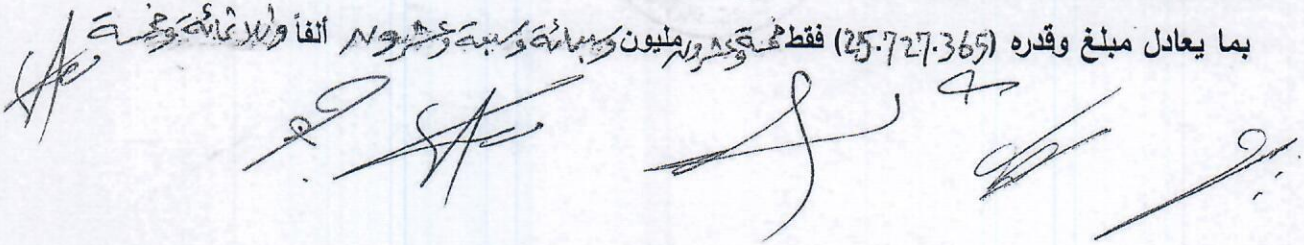 بما يعادل مبلغ وقدره (25.727.365) فقط خمسة وعشرون مليون وسبعمائة وسبعة وعشرون ألفاً وثلاثمائة وخمسة